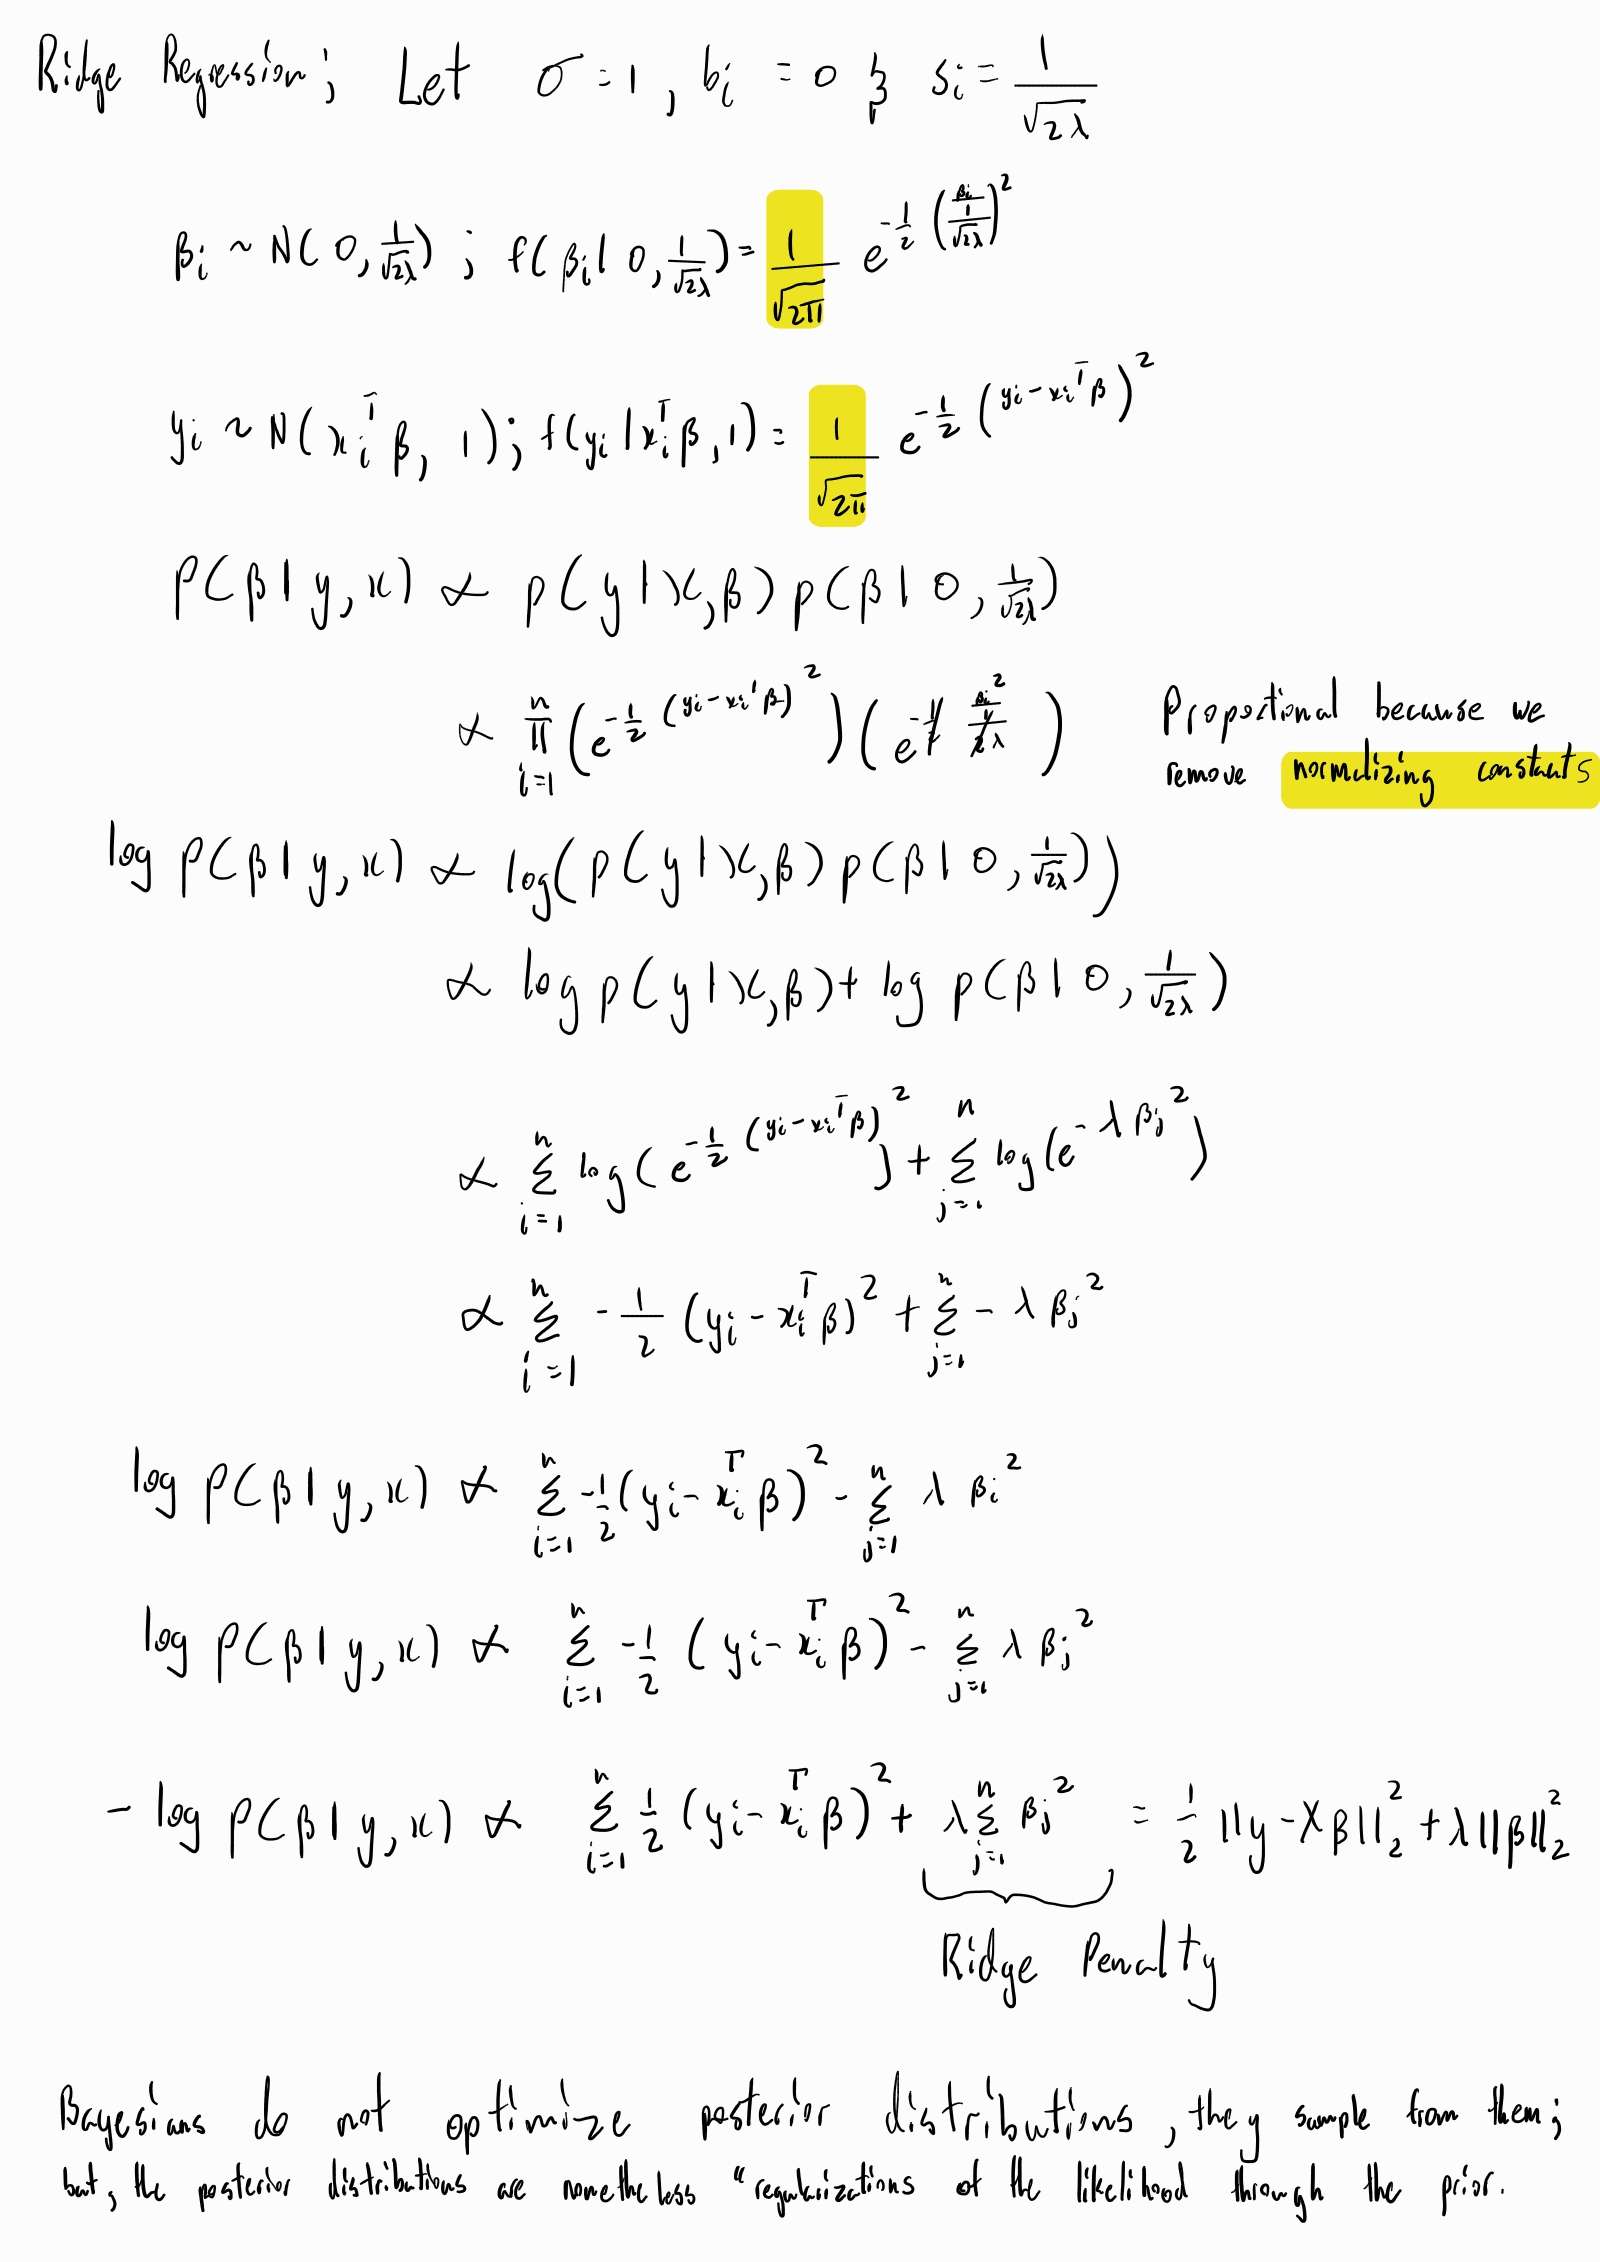 Ridge Regression; Let σ = 1, bᵢ = 0 & sᵢ = 1/√(2λ)
βᵢ ~ N(0, 1/√(2λ)) ; f(βᵢ | 0, 1/√(2λ)) = 1/√(2π) e^(-1/2 (βᵢ/(1/√(2λ)))²)
yᵢ ~ N(xᵢᵀβ, 1); f(yᵢ | xᵢᵀβ, 1) = 1/√(2π) e^(-1/2 (yᵢ - xᵢᵀβ)²)
P(β | y, x) ∝ p(y | x, β) p(β | 0, 1/√(2λ))
∝ ∏_{i=1}^{n} (e^(-1/2 (yᵢ - xᵢᵀβ)²)) (e^(-1/2 βᵢ²/(1/2λ)))
Proportional because we
remove normalizing constants
log P(β | y, x) ∝ log(p(y | x, β) p(β | 0, 1/√(2λ)))
∝ log p(y | x, β) + log p(β | 0, 1/√(2λ))
∝ Σ_{i=1}^{n} log(e^(-1/2 (yᵢ - xᵢᵀβ)²)) + Σ_{j=1}^{n} log(e^(-λβⱼ²))
∝ Σ_{i=1}^{n} -1/2 (yᵢ - xᵢᵀβ)² + Σ_{j=1}^{n} - λβⱼ²
log P(β | y, x) ∝ Σ_{i=1}^{n} -1/2 (yᵢ - xᵢᵀβ)² - Σ_{j=1}^{n} λ βᵢ²
log P(β | y, x) ∝ Σ_{i=1}^{n} -1/2 (yᵢ - xᵢᵀβ)² - Σ_{j=1}^{n} λ βⱼ²
- log P(β | y, x) ∝ Σ_{i=1}^{n} 1/2 (yᵢ - xᵢᵀβ)² + λ Σ_{j=1}^{n} βⱼ² = 1/2 ||y - Xβ||₂² + λ||β||₂²
Ridge Penalty
Bayesians do not optimize posterior distributions, they sample from them;
but, the posterior distributions are nonetheless "regularizations of the likelihood through the prior.